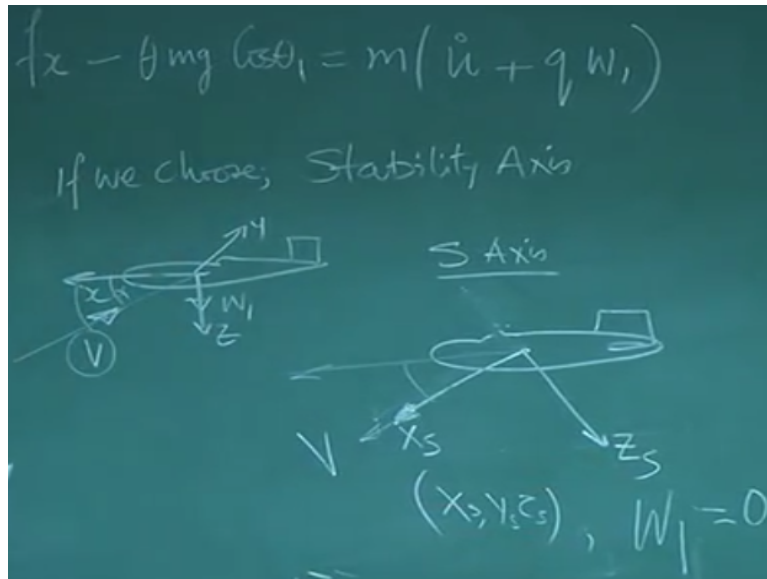 fx - θ mg Cosθ₁ = m( u̇ + q W₁ )
If we choose; Stability Axis
Y
x
W₁
Z
V
S Axis
V
Xs
Zs
(Xs, Ys Zs), W₁ = 0